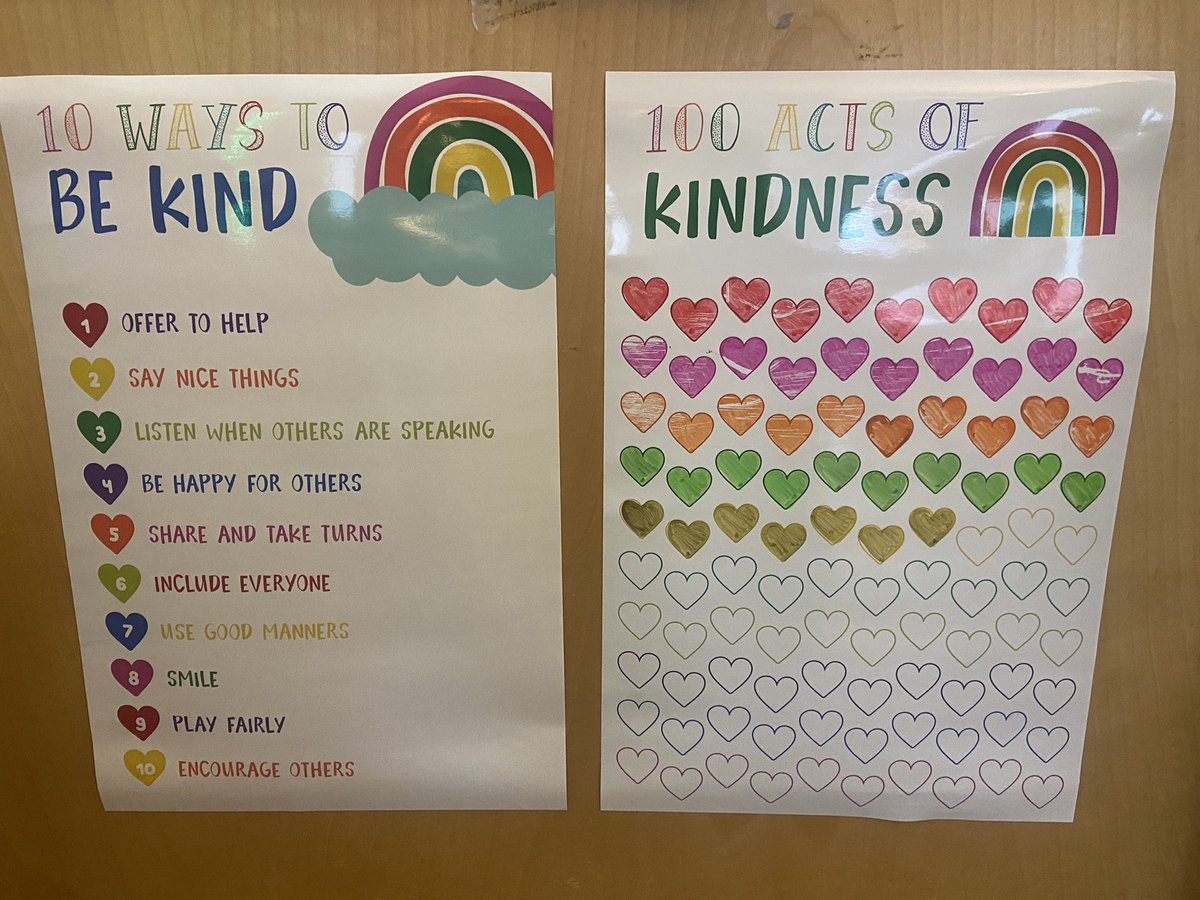 10 WAYS TO
BE KIND
1 OFFER TO HELP
2 SAY NICE THINGS
3 LISTEN WHEN OTHERS ARE SPEAKING
4 BE HAPPY FOR OTHERS
5 SHARE AND TAKE TURNS
6 INCLUDE EVERYONE
7 USE GOOD MANNERS
8 SMILE
9 PLAY FAIRLY
10 ENCOURAGE OTHERS
100 ACTS OF
KINDNESS